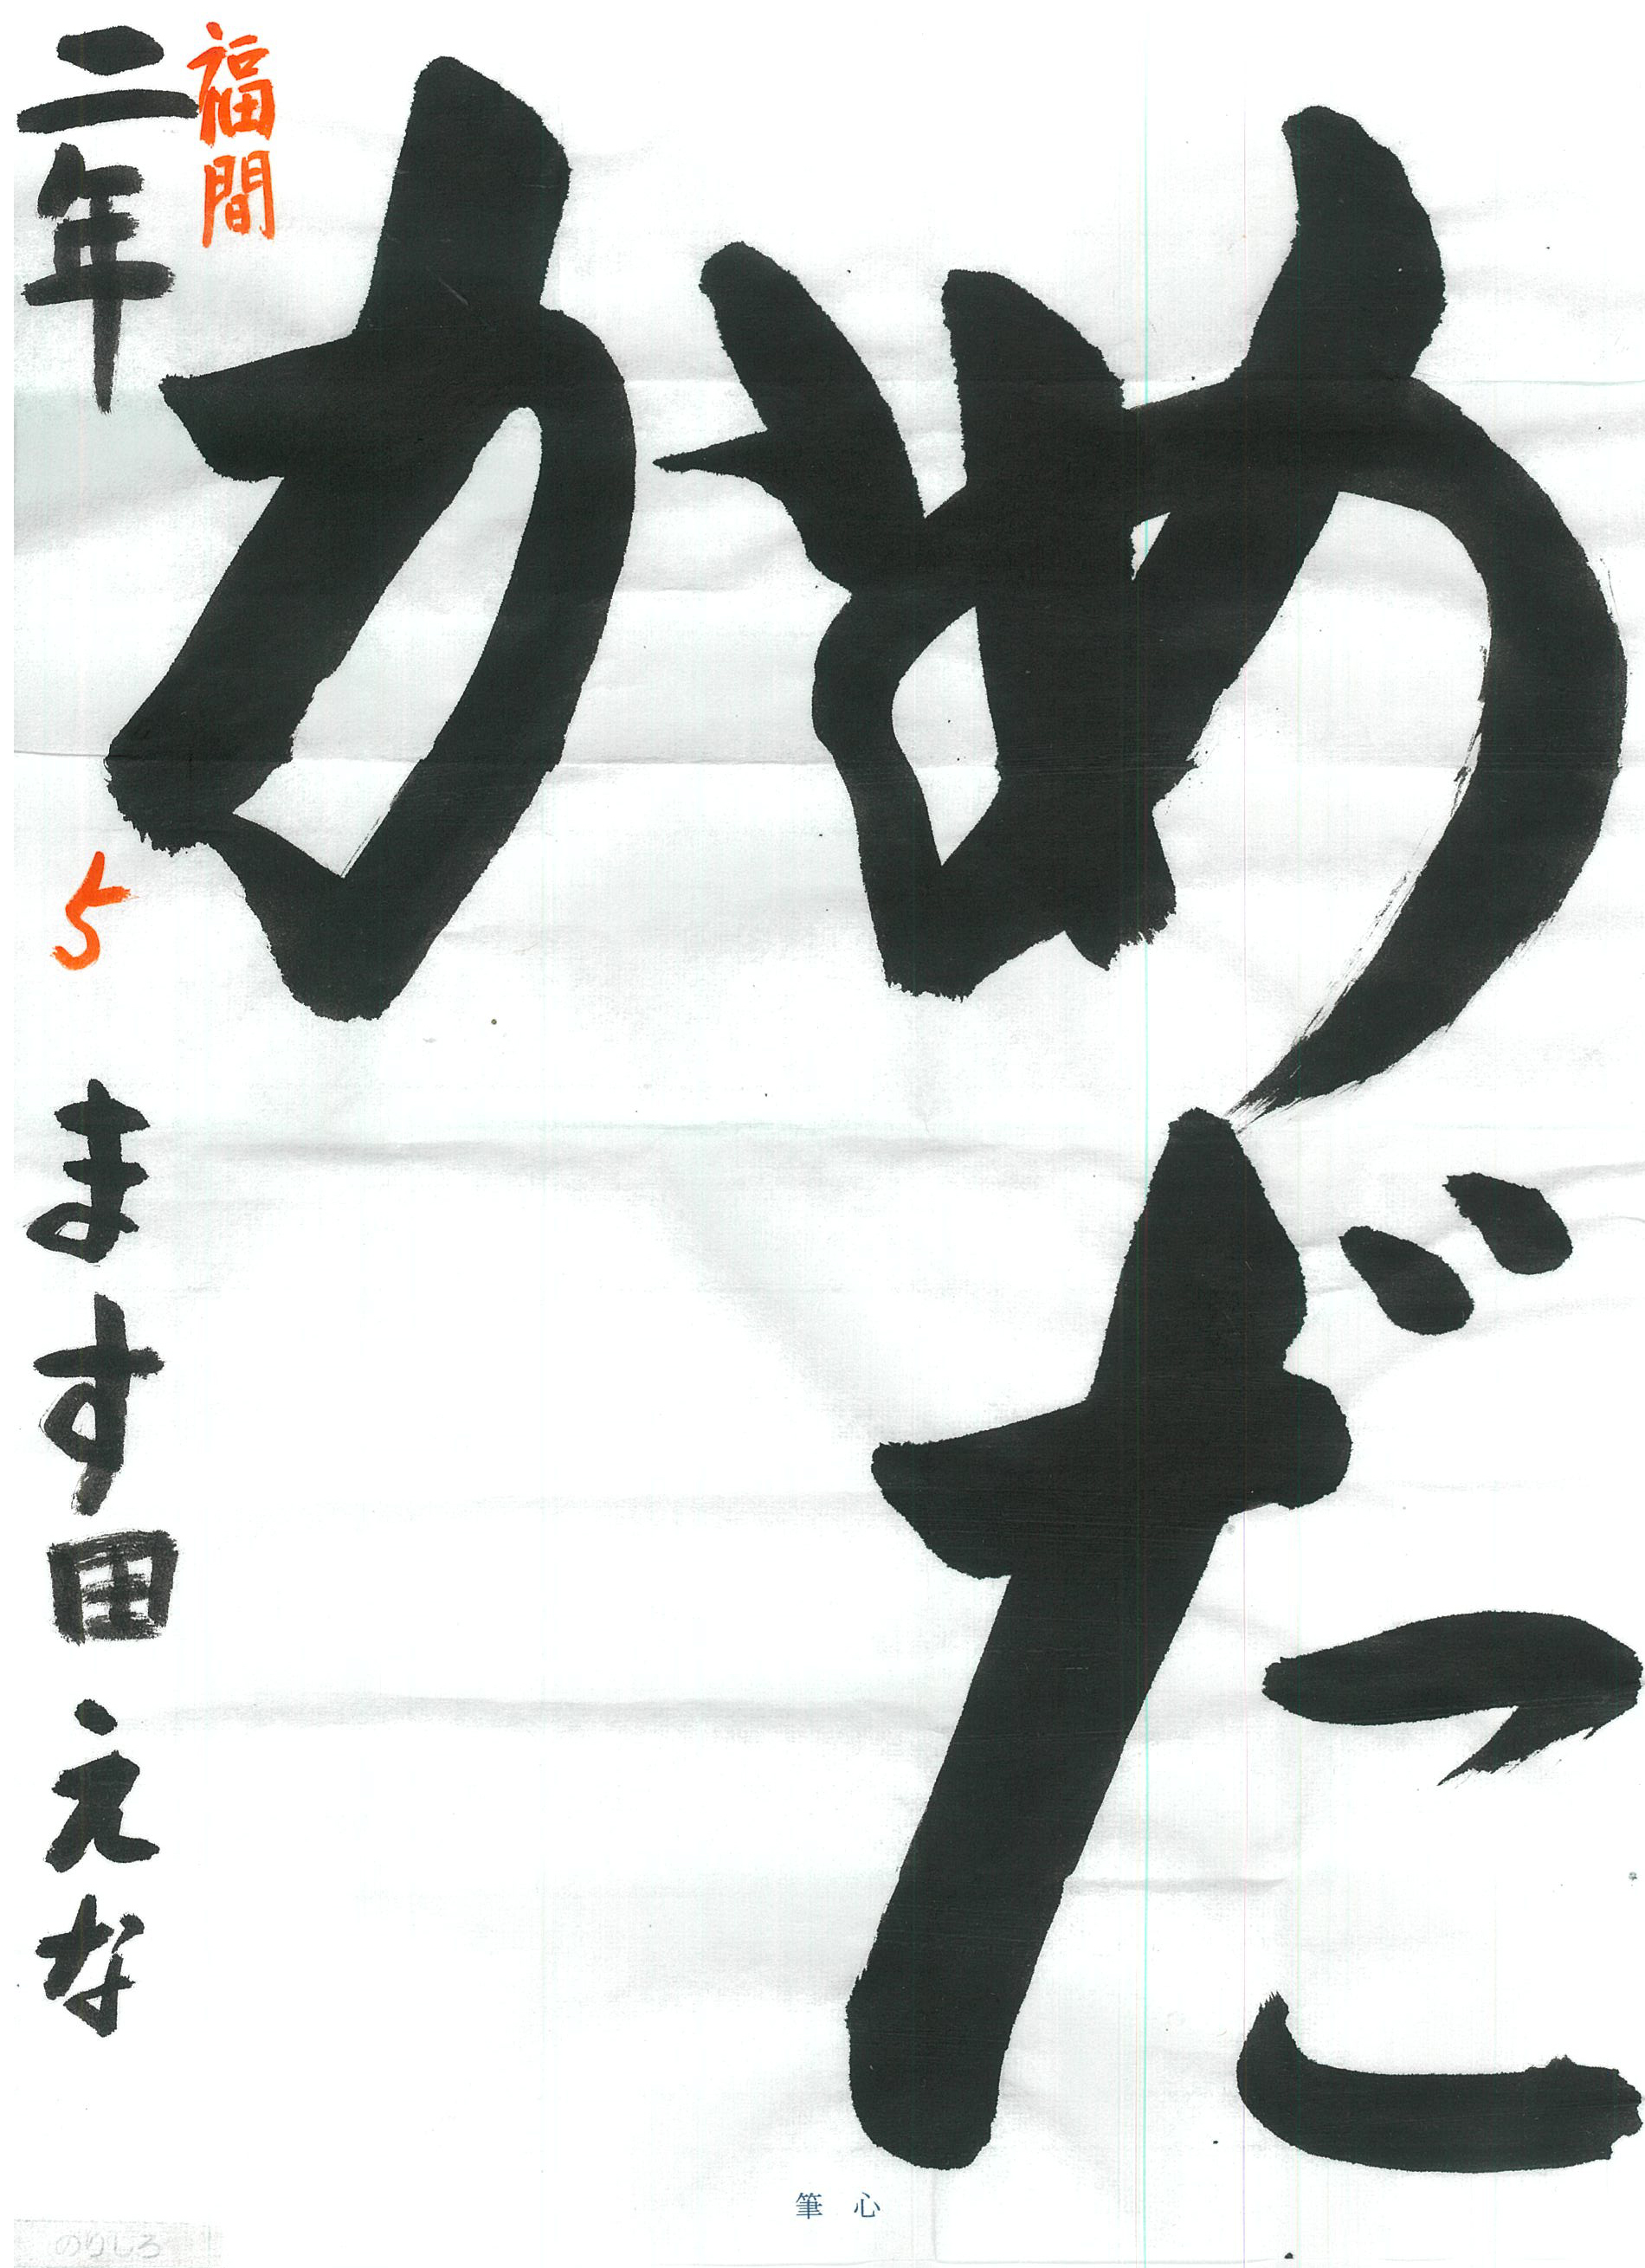 めだ
か
福間
二年 ます田 えな
5
筆 心
のりしろ